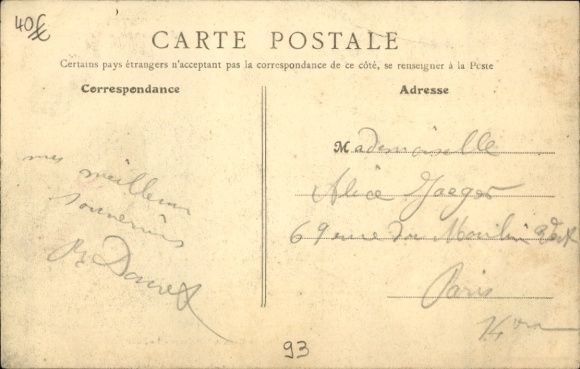 40F
CARTE POSTALE
Certains pays étrangers n'acceptant pas la correspondance de ce côté, se renseigner à la Poste
Correspondance
Adresse
mes meilleurs
souvenirs
Mademoiselle
Alice Jaeger
69 rue du Moulin Vert
Paris
14
93